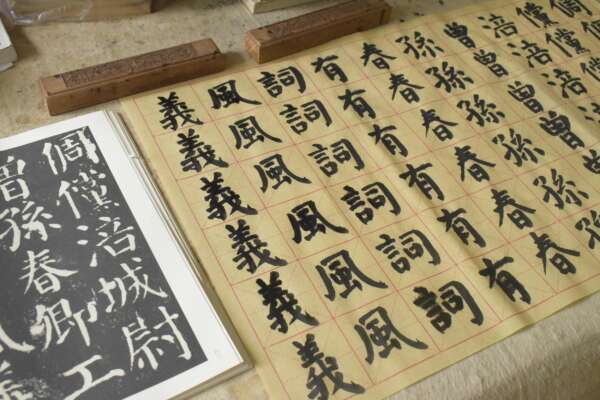 倜儻涪城尉
曾孫春卿工
倜倜
儻儻儻
涪涪涪涪
曾曾曾曾曾
孫孫孫孫孫孫
春春春春春春
有有有有有有
詞詞詞詞詞詞
風風風風風風
義義義義義義